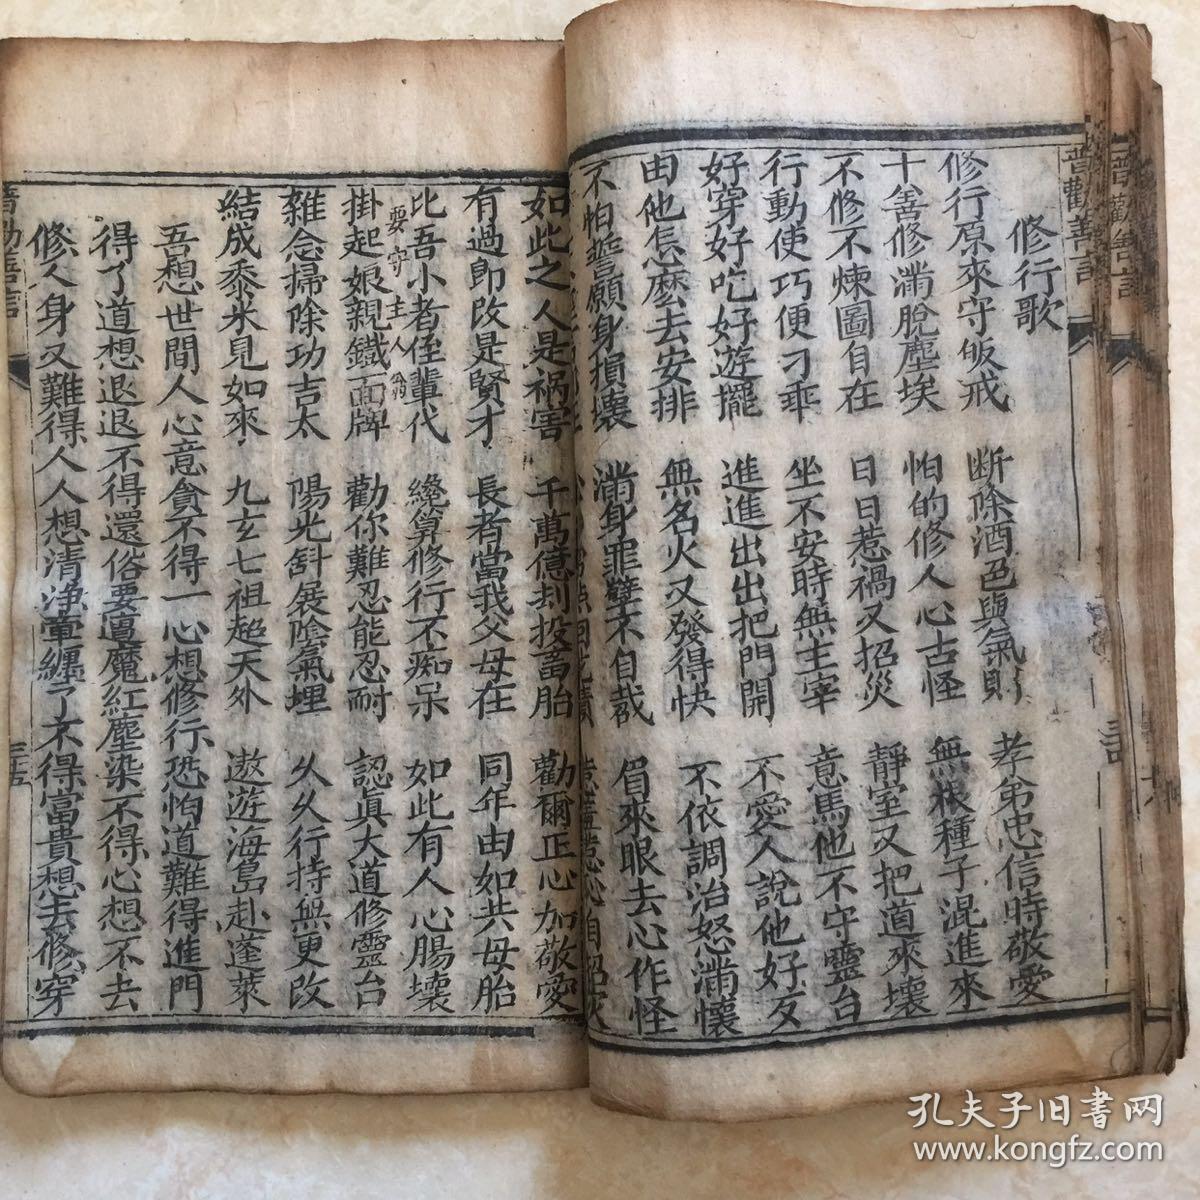 普勸善言
修行歌
修行原來守皈戒 断除酒色與氣財 孝弟忠信時敬愛
十善修滿脫塵埃 怕的修人心古怪 無根種子混進來
不修不煉圖自在 日日惹禍又招災 靜室又把道來壞
行動使巧便刁乖 坐不安時無主宰 意馬他不守靈台
好穿好吃好遊擺 進進出出把門開 不愛人說他好歹
由他怎麼去安排 無名火又發得快 不依調治怒滿懷
不怕誓願身損壞 滿身罪孽不自裁 眉來眼去心作怪
如此之人是禍害 千萬億刦投畜胎 勸爾正心加敬愛
有過即改是賢才 長者當我父母在 同年由如共母胎
比吾小者侄輩代 纔算修行不痴呆 如此有人心腸壞
要守主人翁
掛起娘親鐵面牌 勸你難忍能忍耐 認真大道修靈台
雜念掃除功吉太 陽光斜展陰氣埋 久久行持無更改
結成黍米見如來 九玄七祖超天外 遨遊海島赴蓬萊
吾想世間人心意貪不得一心想修行恐怕道難得進門
得了道想退退不得還俗要遭魔紅塵染不得心想不去
修人身又難得人人想清淨牽纏了不得富貴想去修穿
三五
孔夫子旧書网
www.kongfz.com